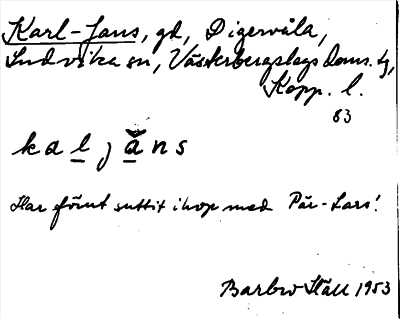 Karl-Jans, gd, Digervåla,
Ludvika sn, Västerbergslags Doms. tg,
Kopp. l.
83
kaljans
Har förut suttit ihop med Pär-Lars!
Barbro Ståll 1953